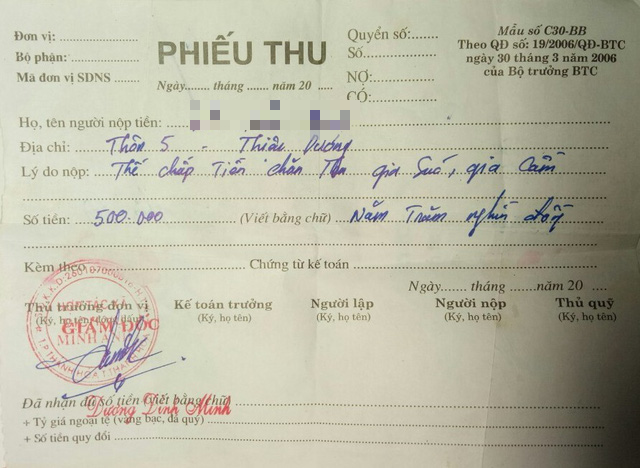 Đơn vị:
Bộ phận:
Mã đơn vị SDNS
PHIẾU THU
Ngày........ tháng ........ năm 20 .....
Quyển số:
Số
NỢ:
CÓ:
Mẫu số C30-BB
Theo QĐ số: 19/2006/QĐ-BTC
ngày 30 tháng 3 năm 2006
của Bộ trưởng BTC
Họ, tên người nộp tiền:
Địa chỉ: Thôn 5 - Thiệu Dương
Lý do nộp: Thế chấp Tiền chăn gia Súc, gia Cầm
Số tiền: 500.000 (Viết bằng chữ) Năm Trăm nghìn đồng
Kèm theo Chứng từ kế toán
Ngày...... tháng ......năm 20
Thủ trưởng đơn vị Kế toán trưởng Người lập Người nộp Thủ quỹ
(Ký, họ tên, đóng dấu) (Ký, họ tên) (Ký, họ tên) (Ký, họ tên) (Ký, họ tên)
GIÁM ĐỐC
MINH ANH
T.P THANH HÓA
Đã nhận đủ số tiền (Viết bằng chữ)
Dương Đình Minh
+ Tỷ giá ngoại tệ (vàng bạc, đá quý)
+ Số tiền quy đổi